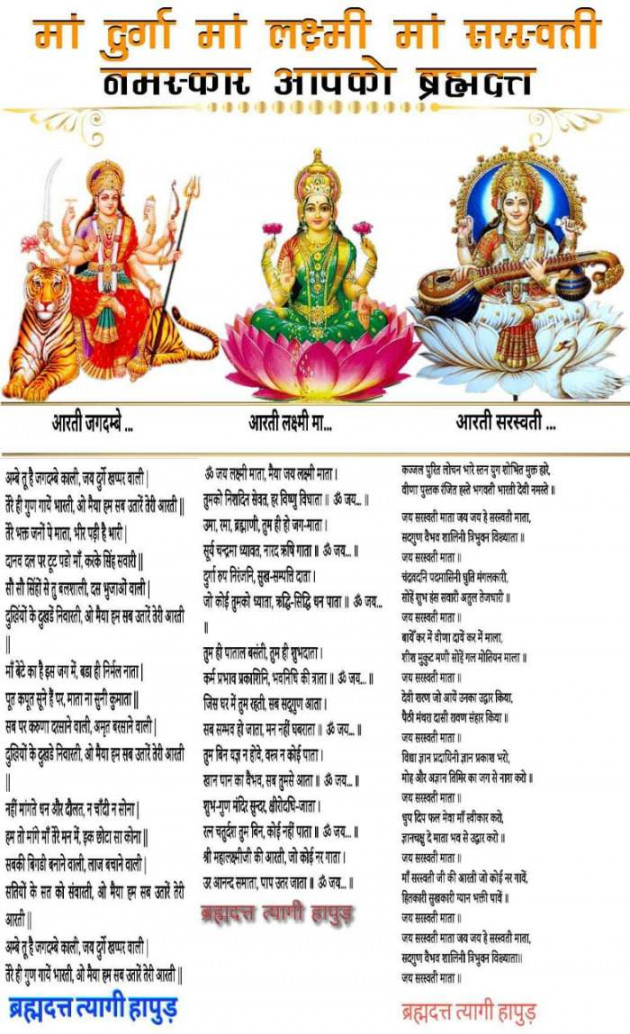 मां दुर्गा मां लक्ष्मी मां सरस्वती
नमस्कार आपको ब्रह्मदत्त
आरती जगदम्बे ...
अम्बे तू है जगदम्बे काली, जय दुर्गे खप्पर वाली |
तेरे ही गुण गायें भारती, ओ मैया हम सब उतारें तेरी आरती ||
तेरे भक्त जनों पे माता, भीर पड़ी है भारी |
दानव दल पर टूट पडो माँ, करके सिंह सवारी ||
सौ सौ सिंहों से तु बलशाली, दस भुजाओं वाली |
दुखियों के दुखडें निवारती, ओ मैया हम सब उतारें तेरी आरती
||
माँ बेटे का है इस जग में, बडा ही निर्मल नाता |
पूत कपूत सूने हैं पर, माता ना सुनी कुमाता ||
सब पर करुणा दरसाने वाली, अमृत बरसाने वाली |
दुखियों के दुखडे निवारती, ओ मैया हम सब उतारें तेरी आरती
||
नहीं मांगते धन और दौलत, न चाँदी न सोना |
हम तो मांगे माँ तेरे मन में, इक छोटा सा कोना ||
सबकी बिगडी बनाने वाली, लाज बचाने वाली |
सतियों के सत को संवाती, ओ मैया हम सब उतारें तेरी
आरती ||
अम्बे तू है जगदम्बे काली, जय दुर्गे खप्पर वाली |
तेरे ही गुण गायें भारती, ओ मैया हम सब उतारें तेरी आरती ||
ब्रह्मदत्त त्यागी हापुड़
आरती लक्ष्मी मा...
ॐ जय लक्ष्मी माता, मैया जय लक्ष्मी माता ।
तुमको निशदिन सेवत, हर विष्णु विधाता ॥ ॐ जय...॥
उमा, रमा, ब्रह्माणी, तुम ही हो जग-माता ।
सूर्य चन्द्रमा ध्यावत, नारद ऋषि गाता ॥ ॐ जय...॥
दुर्गा रुप निरंजनि, सुख-सम्पत्ति दाता ।
जो कोई तुमको ध्याता, ऋद्धि-सिद्धि धन पाता ॥ ॐ जय...
॥
तुम ही पाताल बसंती, तुम ही शुभदाता ।
कर्म प्रभाव प्रकाशिनि, भवनिधि की त्राता ॥ ॐ जय... ॥
जिस घर में तुम रहती, सब सद्गुण आता ।
सब सम्भव हो जाता, मन नहीं घबराता ॥ ॐ जय... ॥
तुम बिन यज्ञ न होवे, वस्त्र न कोई पाता ।
खान पान का वैभव, सब तुमसे आता ॥ ॐ जय... ॥
शुभ-गुण मंदिर सुन्दर, क्षीरोदधि-जाता ।
रत्न चतुर्दश तुम बिन, कोई नहीं पाता ॥ ॐ जय... ॥
श्री महालक्ष्मीजी की आरती, जो कोई नर गाता ।
उर आनन्द समाता, पाप उतर जाता ॥ ॐ जय...॥
ब्रह्मदत्त त्यागी हापुड़
आरती सरस्वती ...
कज्जल पुरित लोचन भारे स्तन युग शोभित मुक्त हारे,
वीणा पुस्तक रंजित हस्ते भगवती भारती देवी नमस्ते ॥
जय सरस्वती माता जय जय हे सरस्वती माता,
सदगुण वैभव शालिनी त्रिभुवन विख्याता॥
जय सरस्वती माता॥
चंद्रवदनि पदमासिनी घुति मंगलकारी,
सोहें शुभ हंस सवारी अतुल तेजधारी ॥
जय सरस्वती माता॥
बायेँ कर में वीणा दायें कर में माला,
शीश मुकुट मणी सोहें गल मोतियन माला ॥
जय सरस्वती माता॥
देवी शरण जो आयें उनका उद्धार किया,
पैठी मंथरा दासी रावण संहार किया ॥
जय सरस्वती माता॥
विद्या ज्ञान प्रदायिनी ज्ञान प्रकाश भरो,
मोह और अज्ञान तिमिर का जग से नाश करो ॥
जय सरस्वती माता॥
धुप दिप फल मेवा माँ स्वीकार करो,
ज्ञानचक्षु दे माता भव से उद्धार करो ॥
जय सरस्वती माता॥
माँ सरस्वती जी की आरती जो कोई नर गावें,
हितकारी सुखकारी ग्यान भक्ती पावें ॥
जय सरस्वती माता॥
जय सरस्वती माता जय जय हे सरस्वती माता,
सदगुण वैभव शालिनी त्रिभुवन विख्याता॥
जय सरस्वती माता॥
ब्रह्मदत्त त्यागी हापुड़